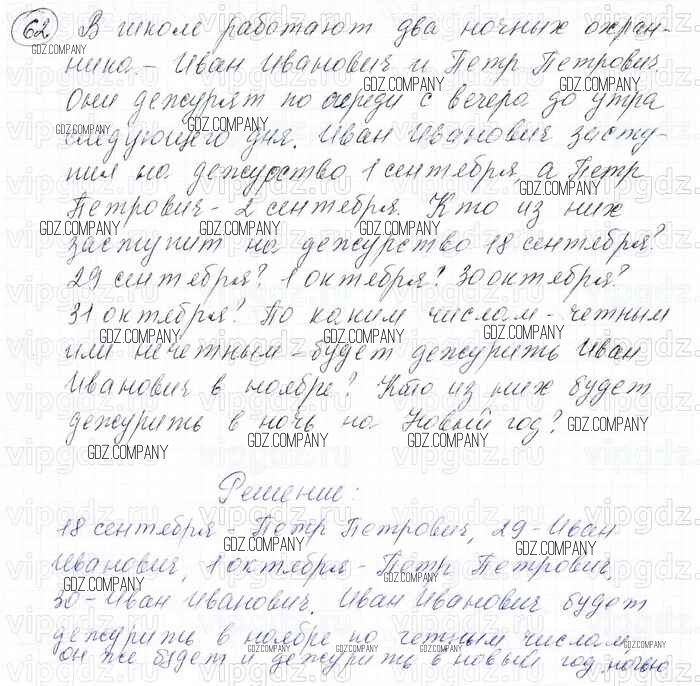 62 В школе работают два ночных охран-
ника - Иван Иванович и Петр Петрович.
Они дежурят по очереди с вечера до утра
следующего дня. Иван Иванович засту-
пил на дежурство 1 сентября, а Петр
Петрович - 2 сентября. Кто из них
заступит на дежурство 18 сентября?
29 сентября? 1 октября? 30 октября?
31 октября? По каким числам - четным
или нечетным - будет дежурить Иван
Иванович в ноябре? Кто из них будет
дежурить в ночь на Новый год?
Решение:
18 сентября - Петр Петрович, 29 - Иван
Иванович, 1 октября - Петр Петрович,
30 - Иван Иванович. Иван Иванович будет
дежурить в ноябре по четным числам,
он же будет и дежурить в новый год ночью
GDZ.COMPANY
vipgdz.ru